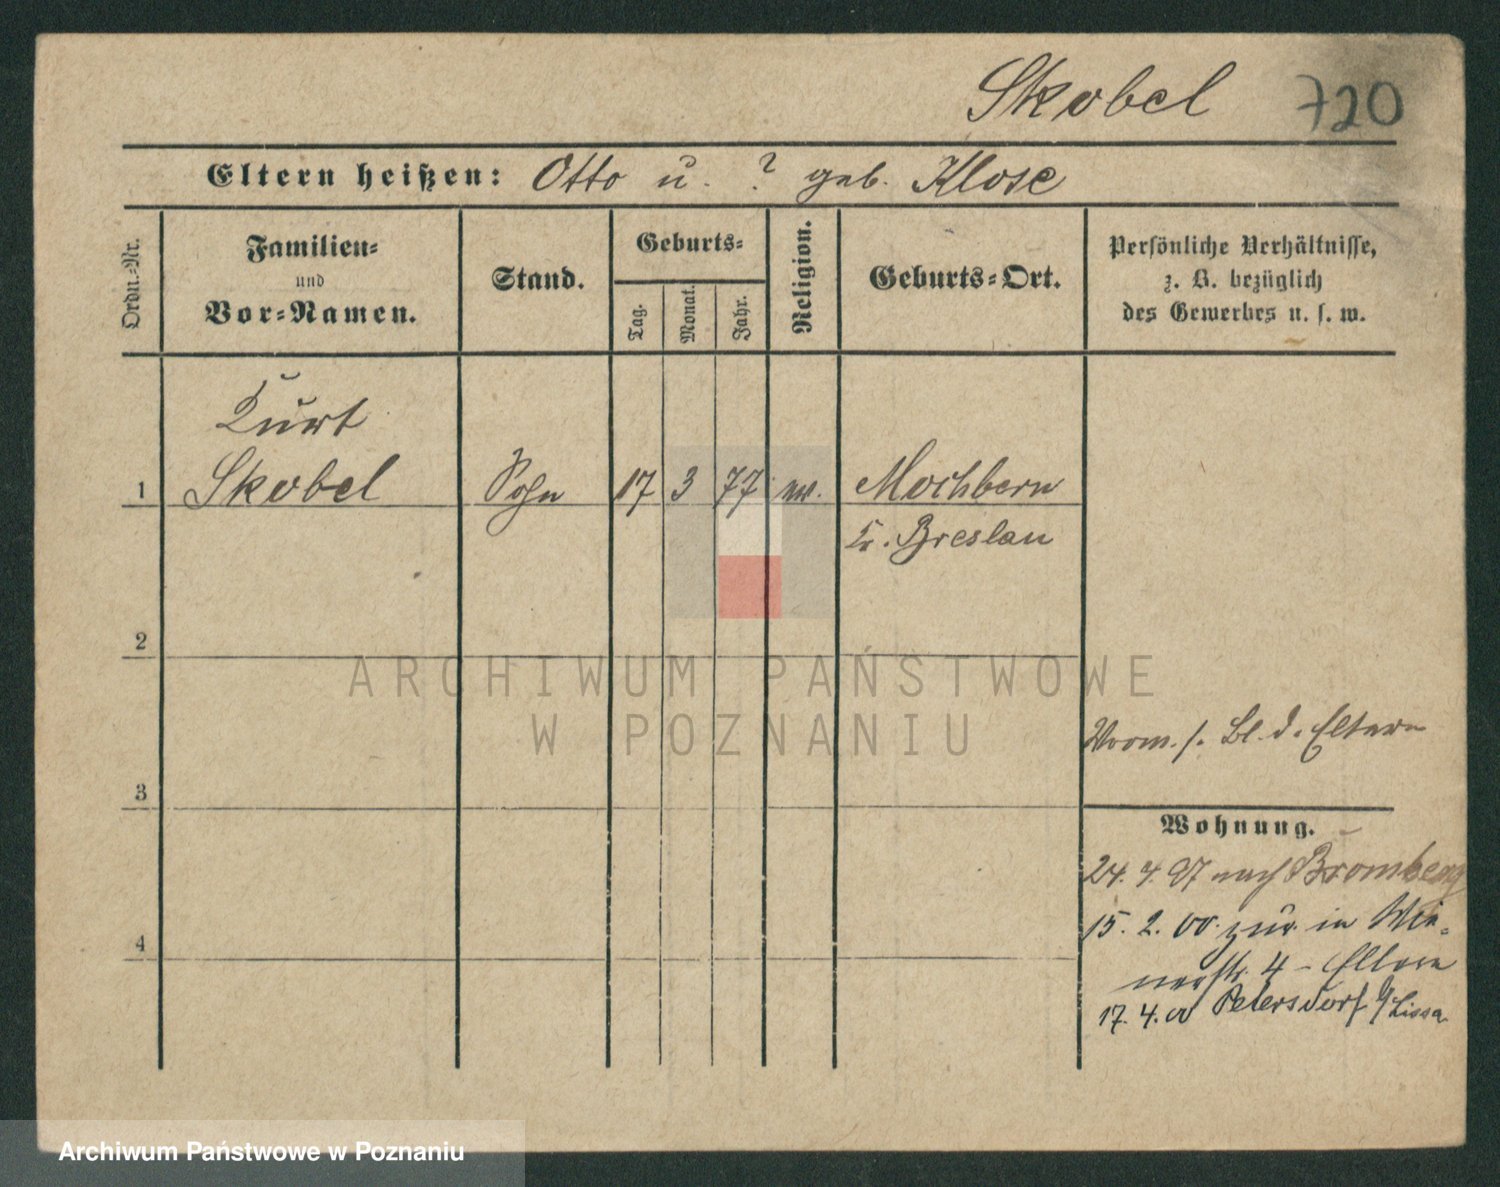 Skobel 720
Eltern heißen: Otto u. ? geb. Klose
Ordn.-Nr.
Familien-
und
Vor-Namen.
Stand.
Geburts-
Tag.
Monat.
Jahr.
Religion.
Geburts-Ort.
Persönliche Verhältnisse,
z. B. bezüglich
des Gewerbes u. s. w.
Kurt
1 Skobel Sohn 17 3 77 ev. Mochbern
Kr. Breslau
2
3
4
Vorm. s. Bl. d. Eltern
Wohnung.
24. 4. 97 nach Bromberg
15. 2. 00. zur. in Wie-
nerstr. 4 - Eltern
17. 4. 00 Petersdorf b/Lissa
ARCHIWUM PAŃSTWOWE
W POZNANIU
Archiwum Państwowe w Poznaniu